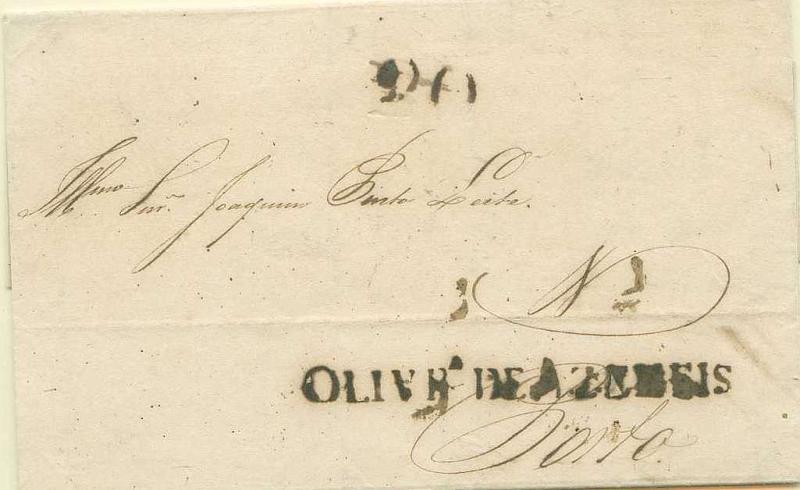 Illmo Snr. Joaquim Pinto Leite.
N
OLIVRA DE AZEMEIS
Porto.